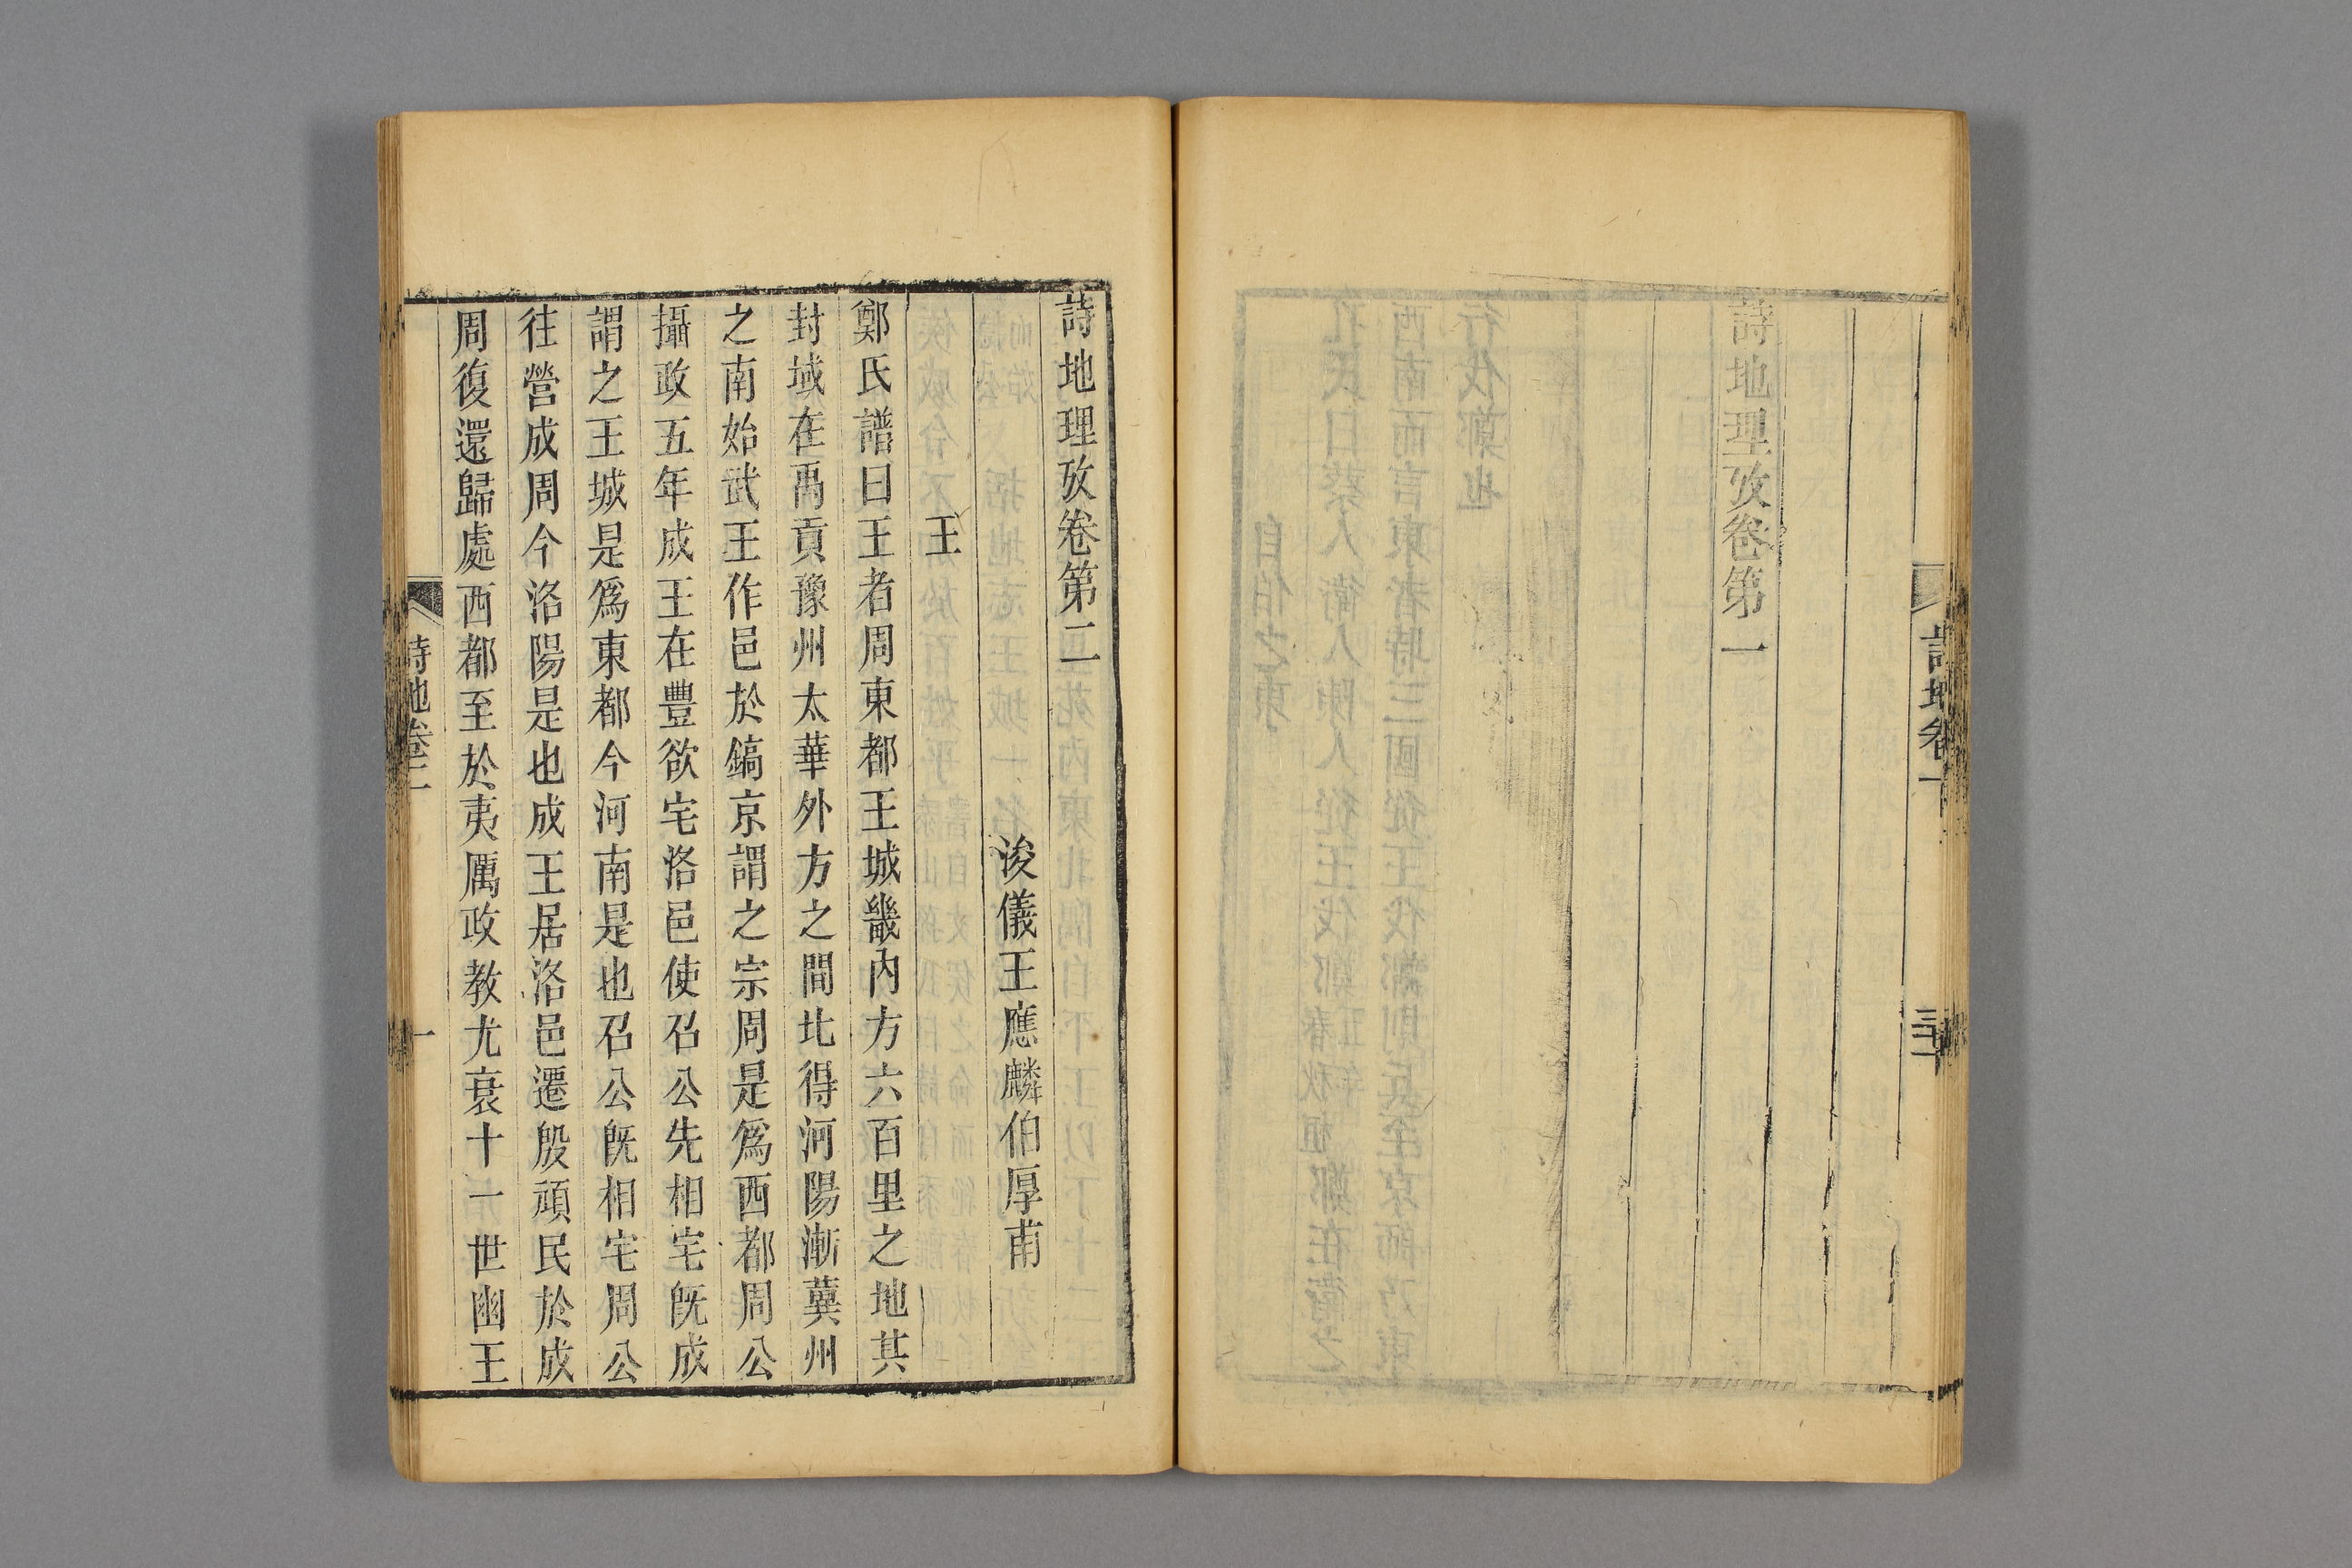 詩地理攷卷第一
詩地卷一
三十
詩地理攷卷第二
浚儀王應麟伯厚甫
王
鄭氏譜曰王者周東都王城畿内方六百里之地其
封域在禹貢豫州太華外方之間北得河陽漸冀州
之南始武王作邑於鎬京謂之宗周是爲西都周公
攝政五年成王在豐欲宅洛邑使召公先相宅旣成
謂之王城是爲東都今河南是也召公旣相宅周公
往營成周今洛陽是也成王居洛邑遷殷頑民於成
周復還歸處西都至於夷厲政教尤衰十一世幽王
詩地卷二
一